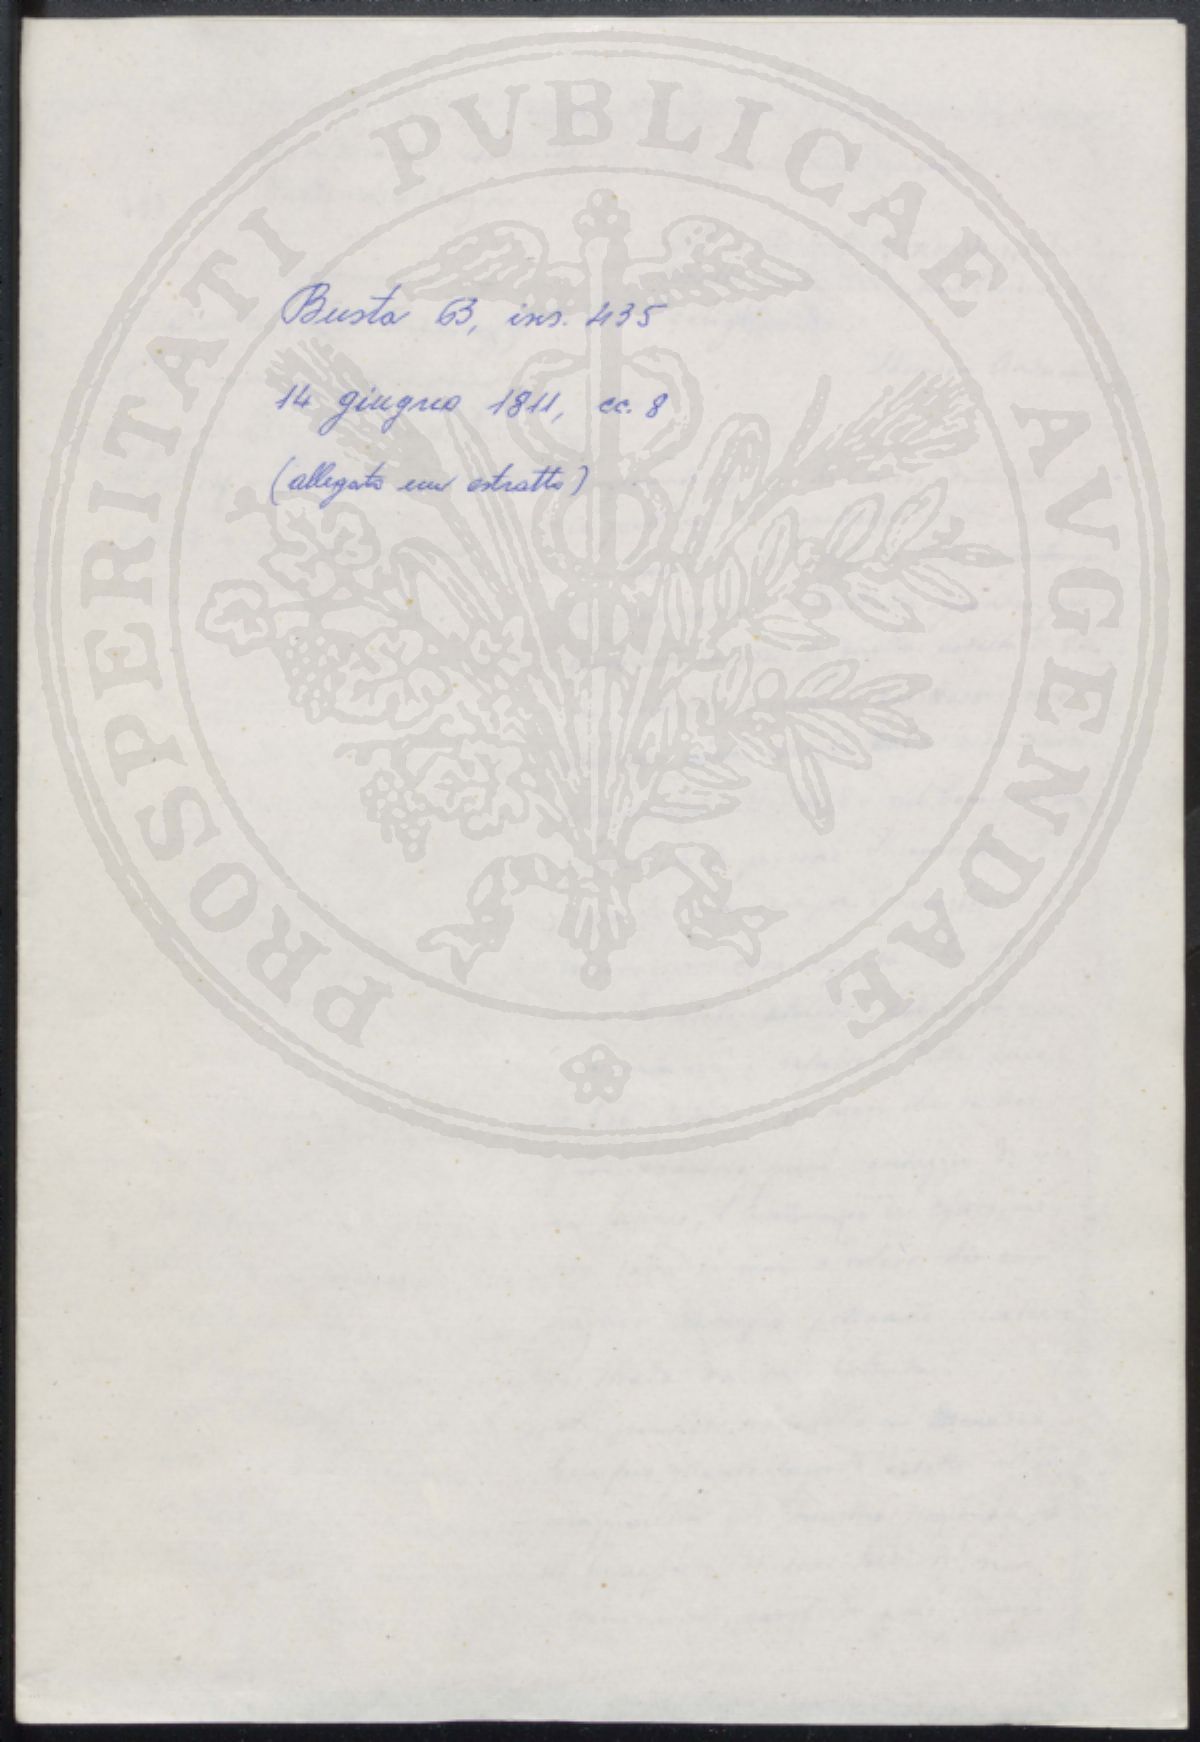 PROSPERITATI PVBLICAE AVGENDAE
Busta 63, ins. 435
14 giugno 1811, cc. 8
(allegato un estratto)